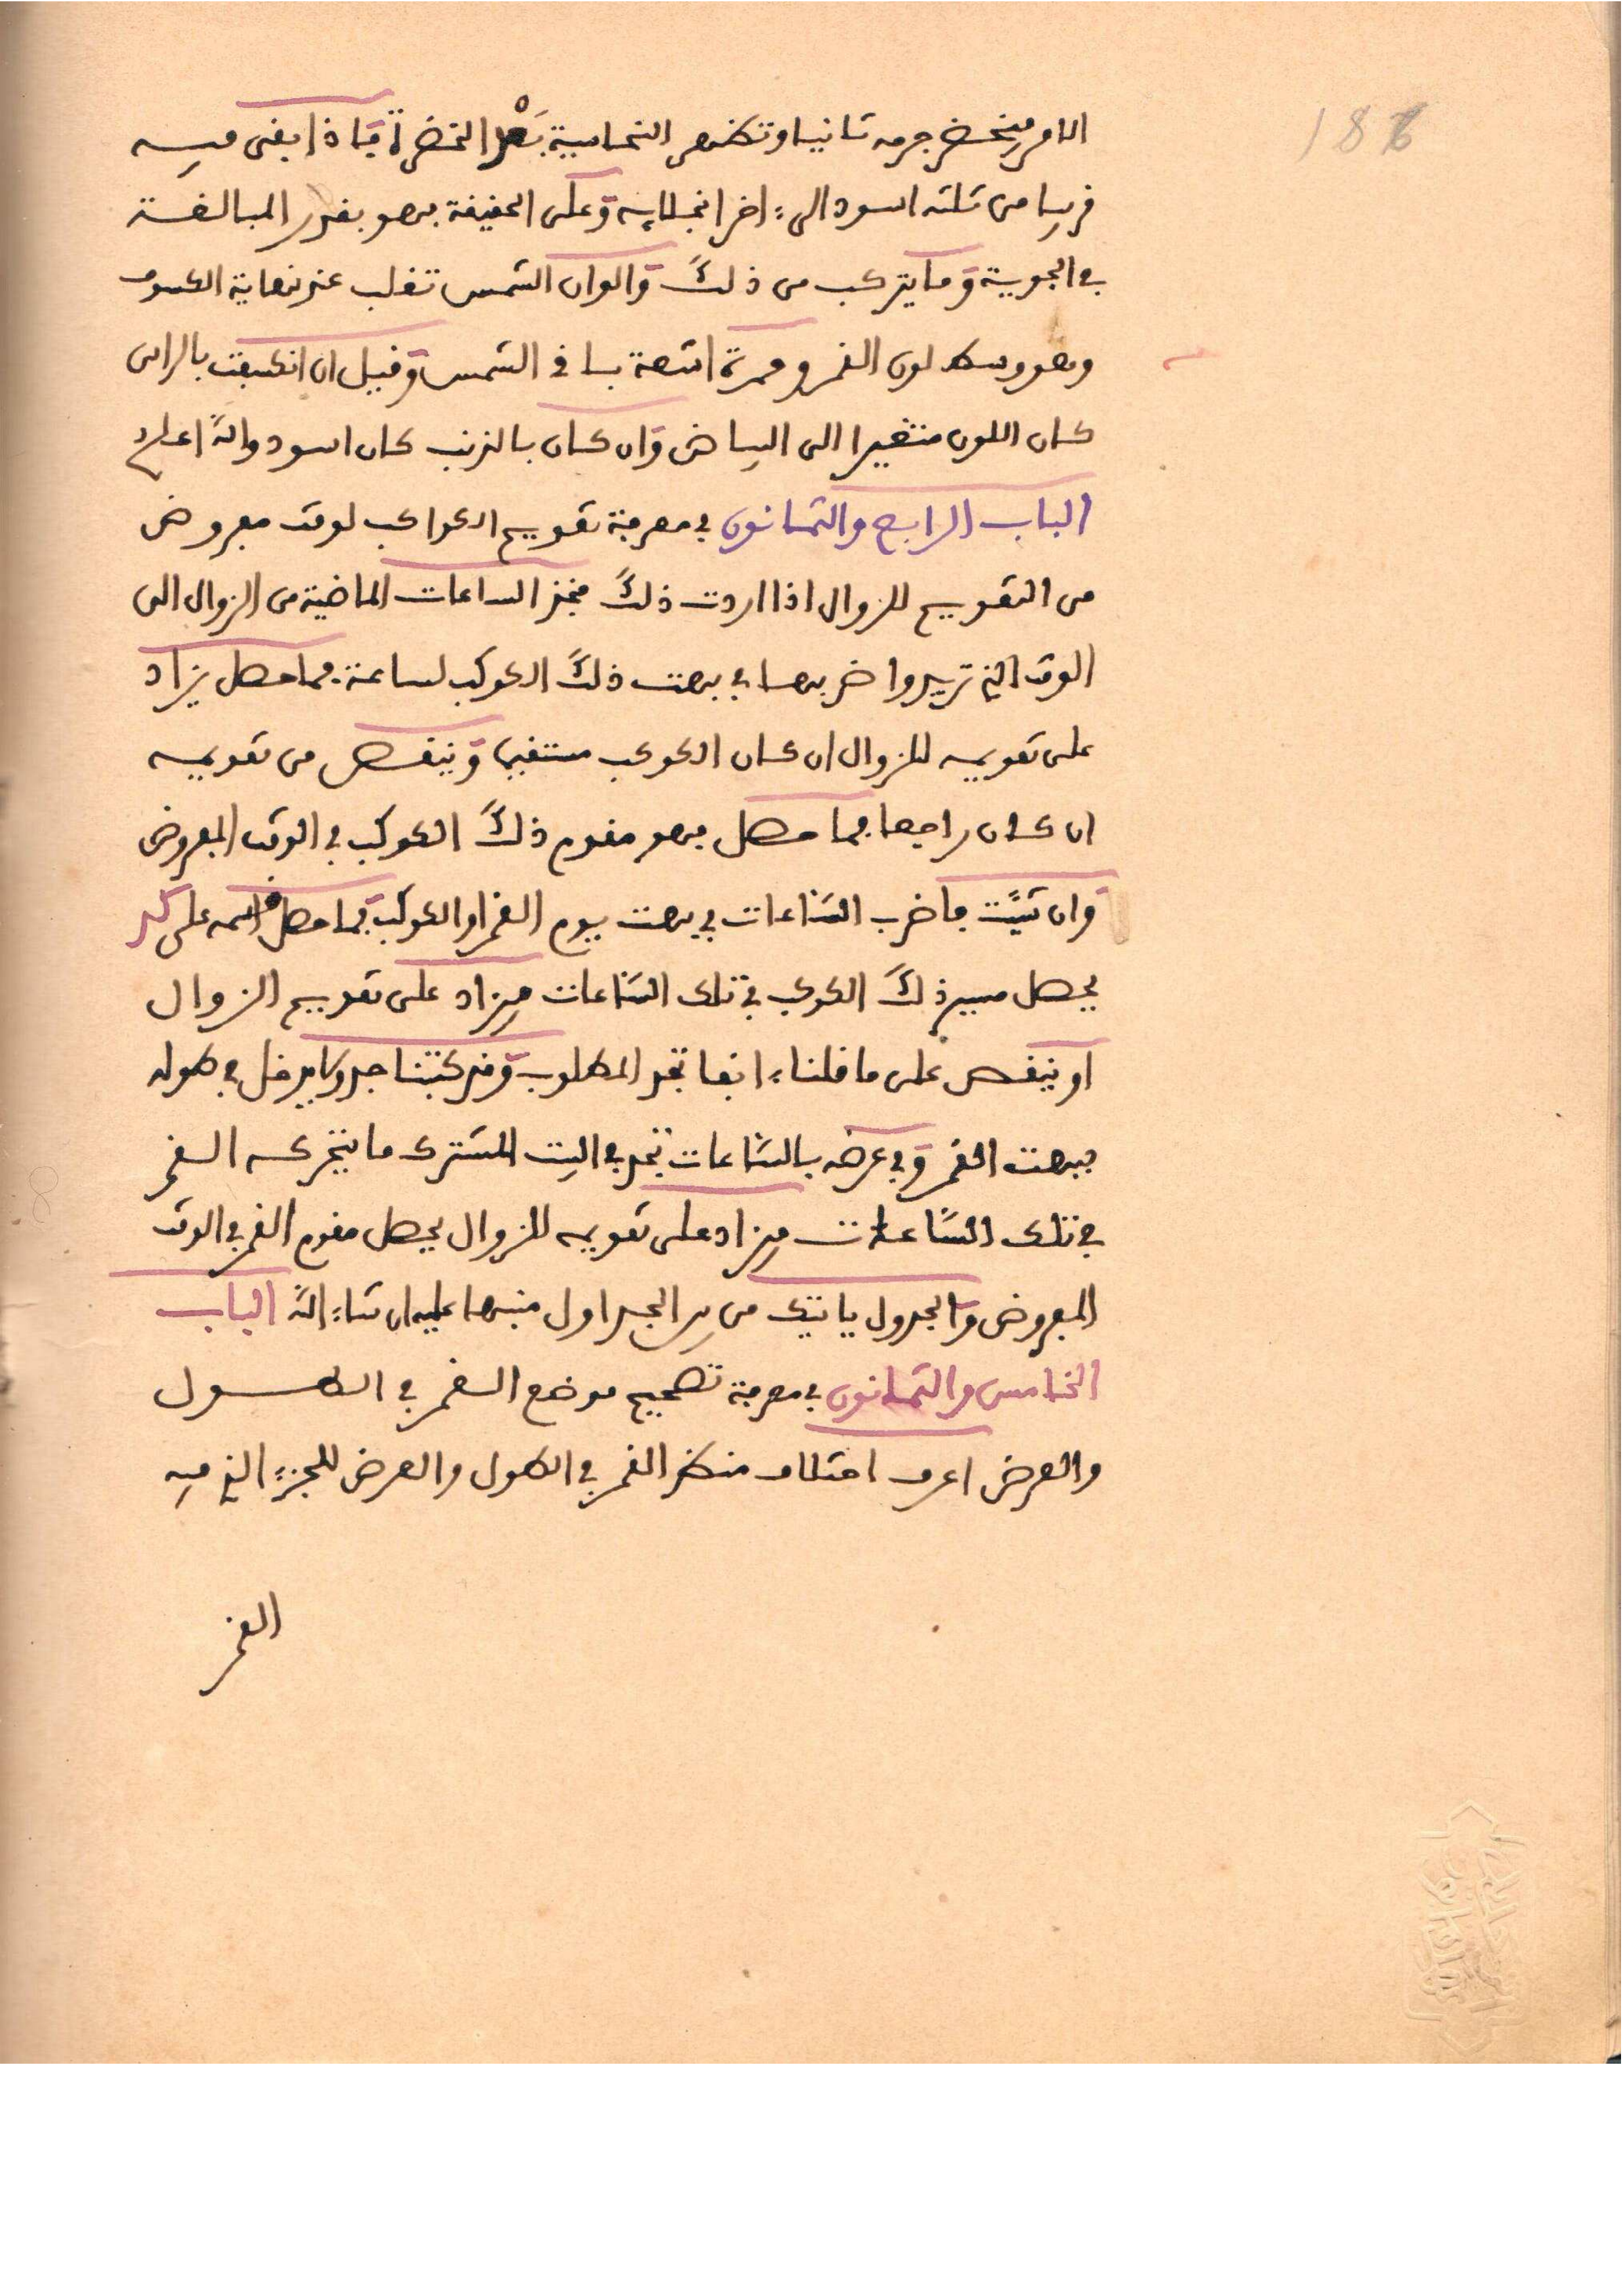 186
الامر فيخضر جرمه ثانيا وتظهر النحاسية بعد الخضرة فاذا بقى فيه
قريبا من ثلثه اسود الى ءاخر انجلايه وعلى الحقيقة فهو بقدر المبالغة
في الجوية وما يتركب من ذلك والوان الشمس تغلب عند نهاية الكسوف
وهو وسط لون القمر وحمرة اشعة باقى الشمس وقيل ان انكسفت بالراس
كان اللون متغيرا الى البياض وان كان بالذنب كان اسود والله اعلم
الباب الرابع والثمانون في معرفة تقويم الكواكب لوقت مفروض
من التقويم للزوال اذا اردت ذلك فخذ الساعات الماضية من الزوال الى
الوقت الذي تريد واضربها في بهت ذلك الكوكب لساعة فما حصل يزاد
على تقويمه للزوال ان كان الكوكب مستقيما وينقص من تقويمه
ان كان راجعا فما حصل فهو مقوم ذلك الكوكب في الوقت المفروض
وان شيت فاضرب الساعات في بهت يوم القمر او الكوكب فما حصل اقسمه على كد
يحصل مسير ذلك الكوكب في تلك الساعات فيزاد على تقويم الزوال
او ينقص على ما قلناه ءانفا تجد المطلوب وقد كتبنا جدولا يدخل في طوله
ببهت القمر وفي عرضه بالساعات تجد في البيت المشترك ما يتحركه القمر
في تلك الساعات فيزاد على تقويمه للزوال يحصل مقوم القمر في الوقت
المفروض والجدول ياتيك من الجداول منبها عليه ان شاء الله الباب
الخامس والثمانون في معرفة تصحيح موضع القمر في الطول
والعرض اعرف اختلاف منظر القمر في الطول والعرض للجزء الذي فيه
القمر